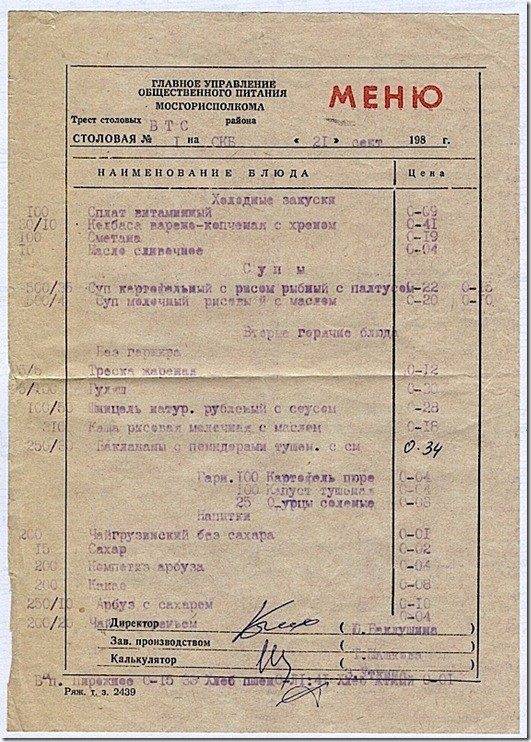 ГЛАВНОЕ УПРАВЛЕНИЕ
ОБЩЕСТВЕННОГО ПИТАНИЯ
МОСГОРИСПОЛКОМА
МЕНЮ
Трест столовых ВТС района
СТОЛОВАЯ № 1 на СКБ « 21 » сент 198 г.
НАИМЕНОВАНИЕ БЛЮДА Цена
Холодные закуски
100 Сплат витаминный 0-09
Колбаса варено-копченая с хреном 0-41
100 Сметана 0-19
10 Масло сливочное 0-04
Супы
Суп картофельный с рисом рыбный с палтусом 0-22
Суп молочный рисовый с маслом 0-20
Вторые горячие блюда
Без гарнира
Треска жареная 0-12
Гуляш 0-30
Шницель натур. рубленый с соусом 0-28
310 Каша рисовая молочная с маслом 0-18
Баклажаны с помидорами тушен. с см 0.34
Гарн. 100 Картофель пюре 0-04
100 Капуст тушеная 0-04
25 Огурцы соленые 0-03
Напитки
200 Чайгрузинский без сахара 0-01
15 Сахар 0-02
200 Компотиз арбуза 0-04
200 Какао 0-08
250/10 Арбуз с сахаром 0-10
0-04
Директор ( Ю.Баклушина )
Зав. производством
Калькулятор
Пирожное 0-15
Ряж. т. з. 2439